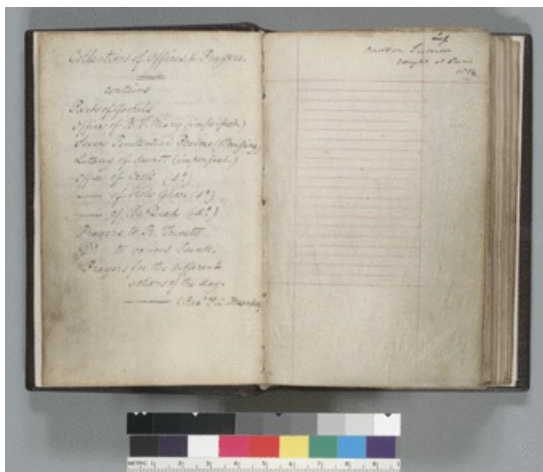 Collection of Offices & Prayers.
contains
Parts of Gospels
Office of B. V. Mary (imperfect.)
Seven Penitential Psalms
Litany of Saints (imperfect.)
Office of Cross (do)
—— of Holy Ghost (do)
—— of the Dead (do)
Prayers to B. Trinity
to various Saints.
Prayers for the different
actions of the day.
bought at Paris
METRIC 1 2 3 4 5 6 7 8 9